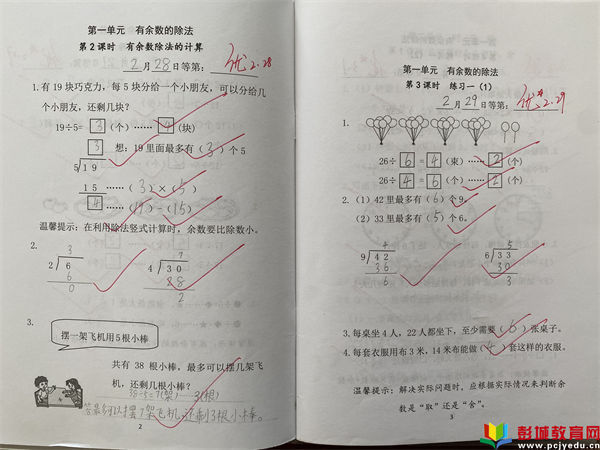 第一单元 有余数的除法
第2课时 有余数除法的计算
2月28日等第：优 2.28
1.有19块巧克力，每5块分给一个小朋友，可以分给几
个小朋友，还剩几块？
19÷5=3(个)……4(块)
3 想：19里面最多有(3)个5
5 19
15……(3)×(5)
4……(19)-(15)
温馨提示：在利用除法竖式计算时，余数要比除数小。
2.
3 7
2 6 4 30
6 28
0 2
3.
摆一架飞机用5根小棒
共有38根小棒，最多可以摆几架飞
机，还剩几根小棒？
38÷5=7(架) 3(根)
答：最多可以摆7架飞机，还剩3根小棒。
2
第一单元 有余数的除法
第3课时 练习一（1）
2月29日等第：优* 2.29
1.
26÷6=4(束)……2(个)
26÷4=6(个)……2(个)
2.（1）42里最多有(6)个9。
（2）33里最多有(5)个6。
4 5
9 42 6 33
36 30
6 3
3.每桌坐4人，22人都坐下，至少需要(6)张桌子。
4.每套衣服用布3米，14米布能做(4)套这样的衣服。
温馨提示：解决实际问题时，应根据实际情况来判断余
数是“取”还是“舍”。
3
彭城教育网
www.pcjyedu.cn